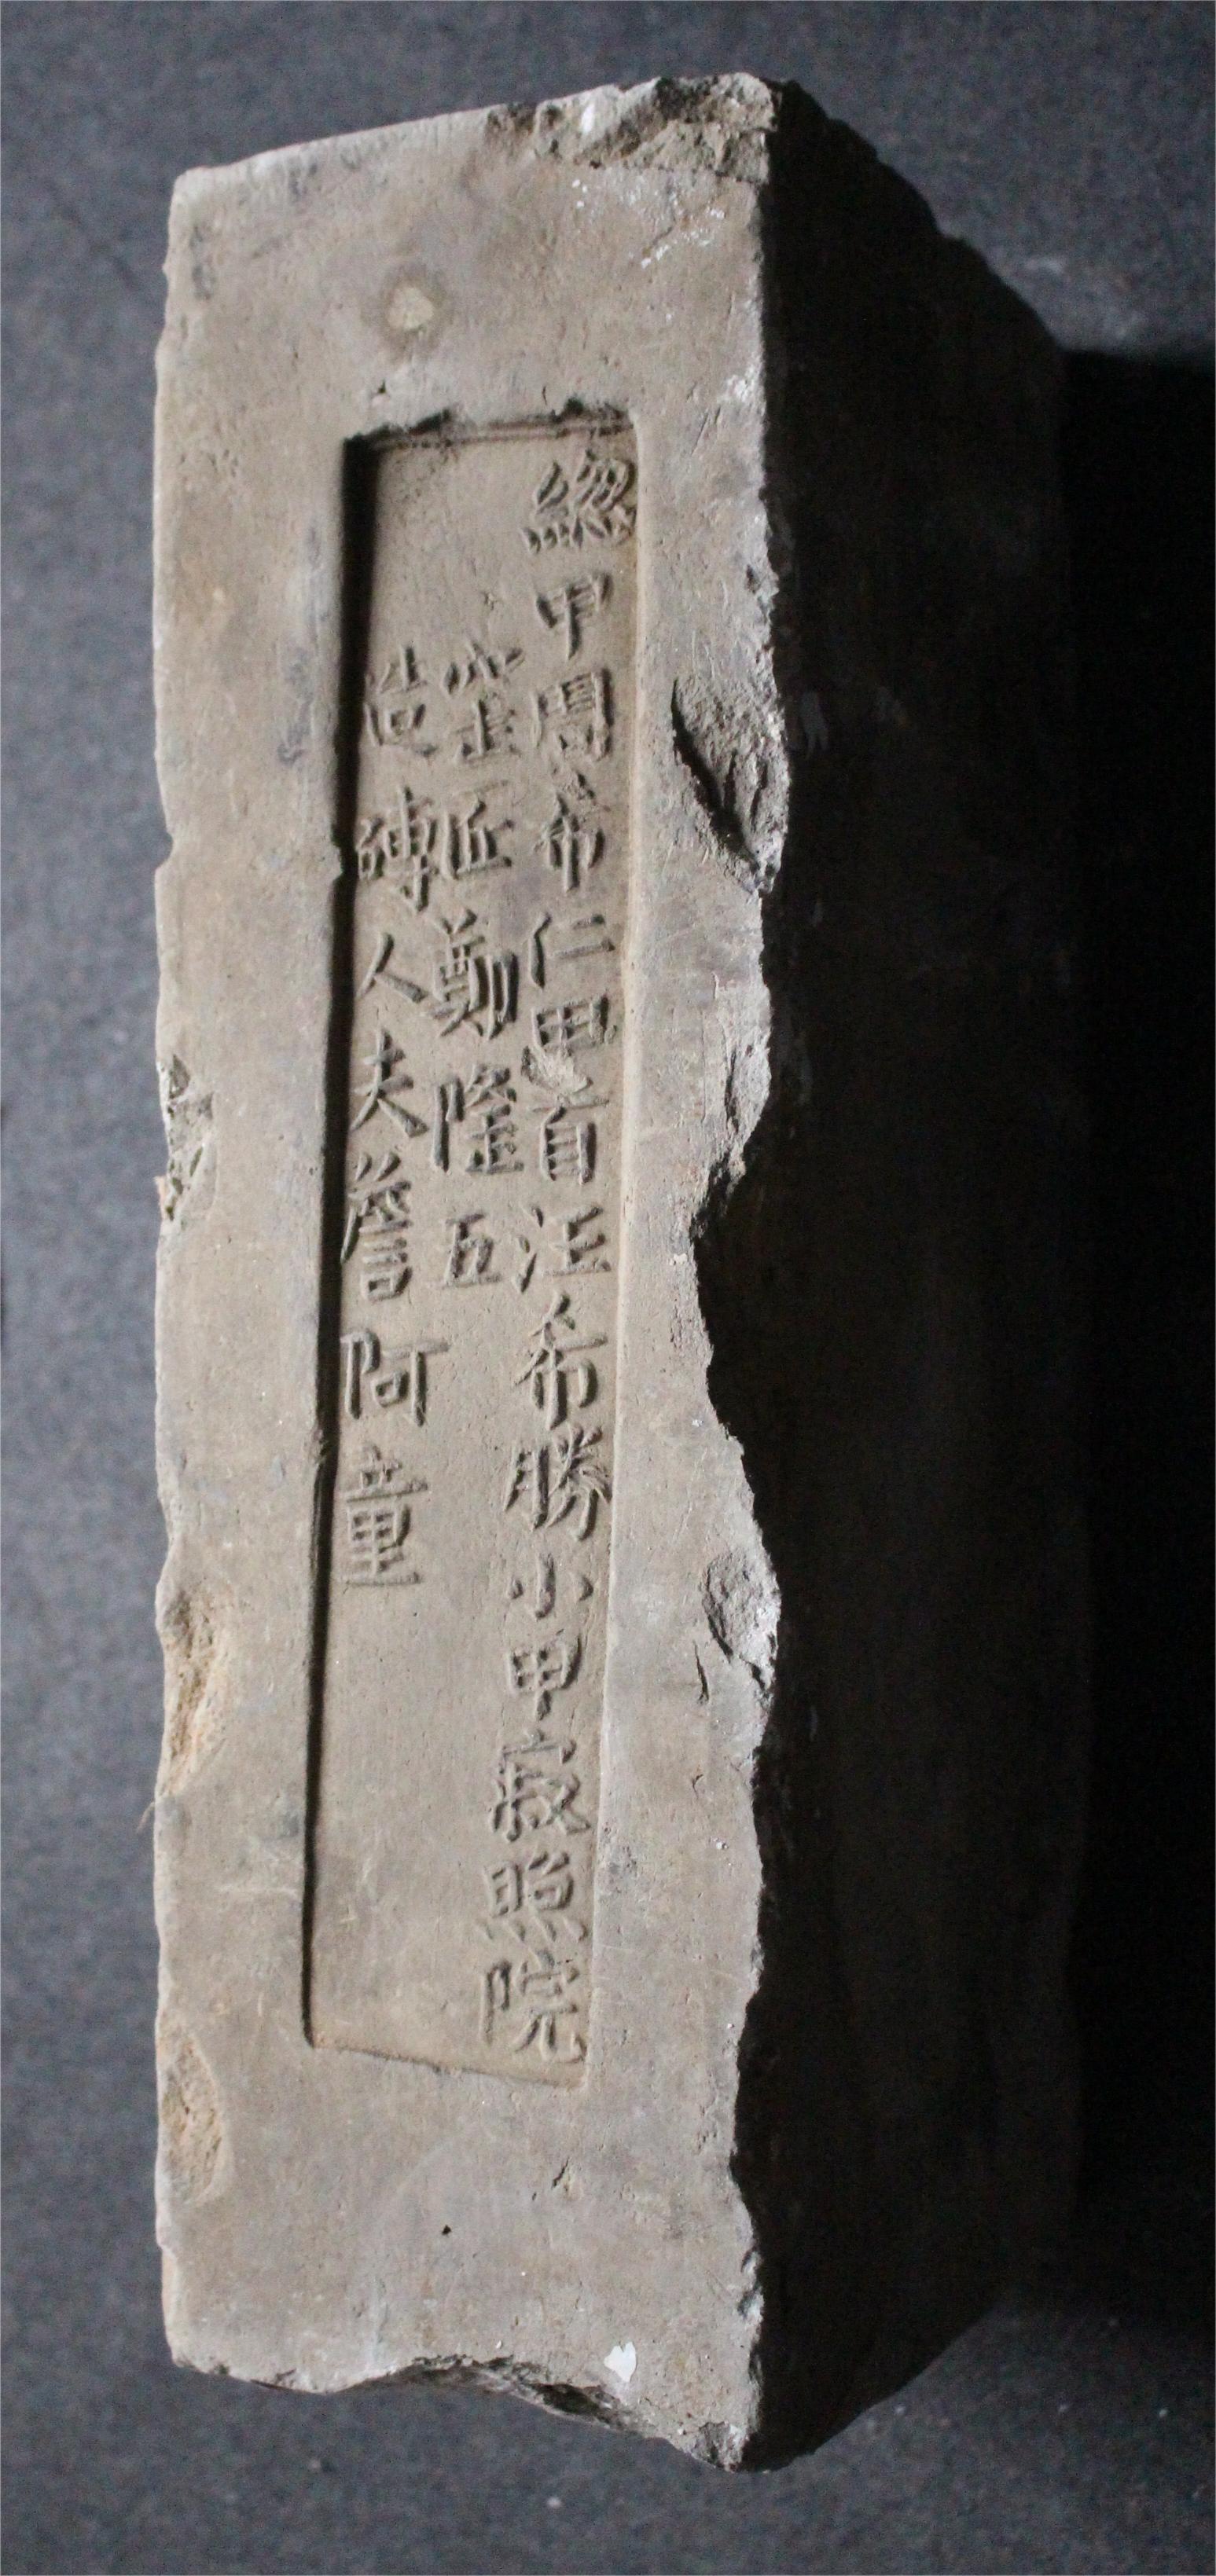 總甲周希仁甲首汪希勝小甲寂照院
窑匠鄭隆五
造磚人夫詹阿童